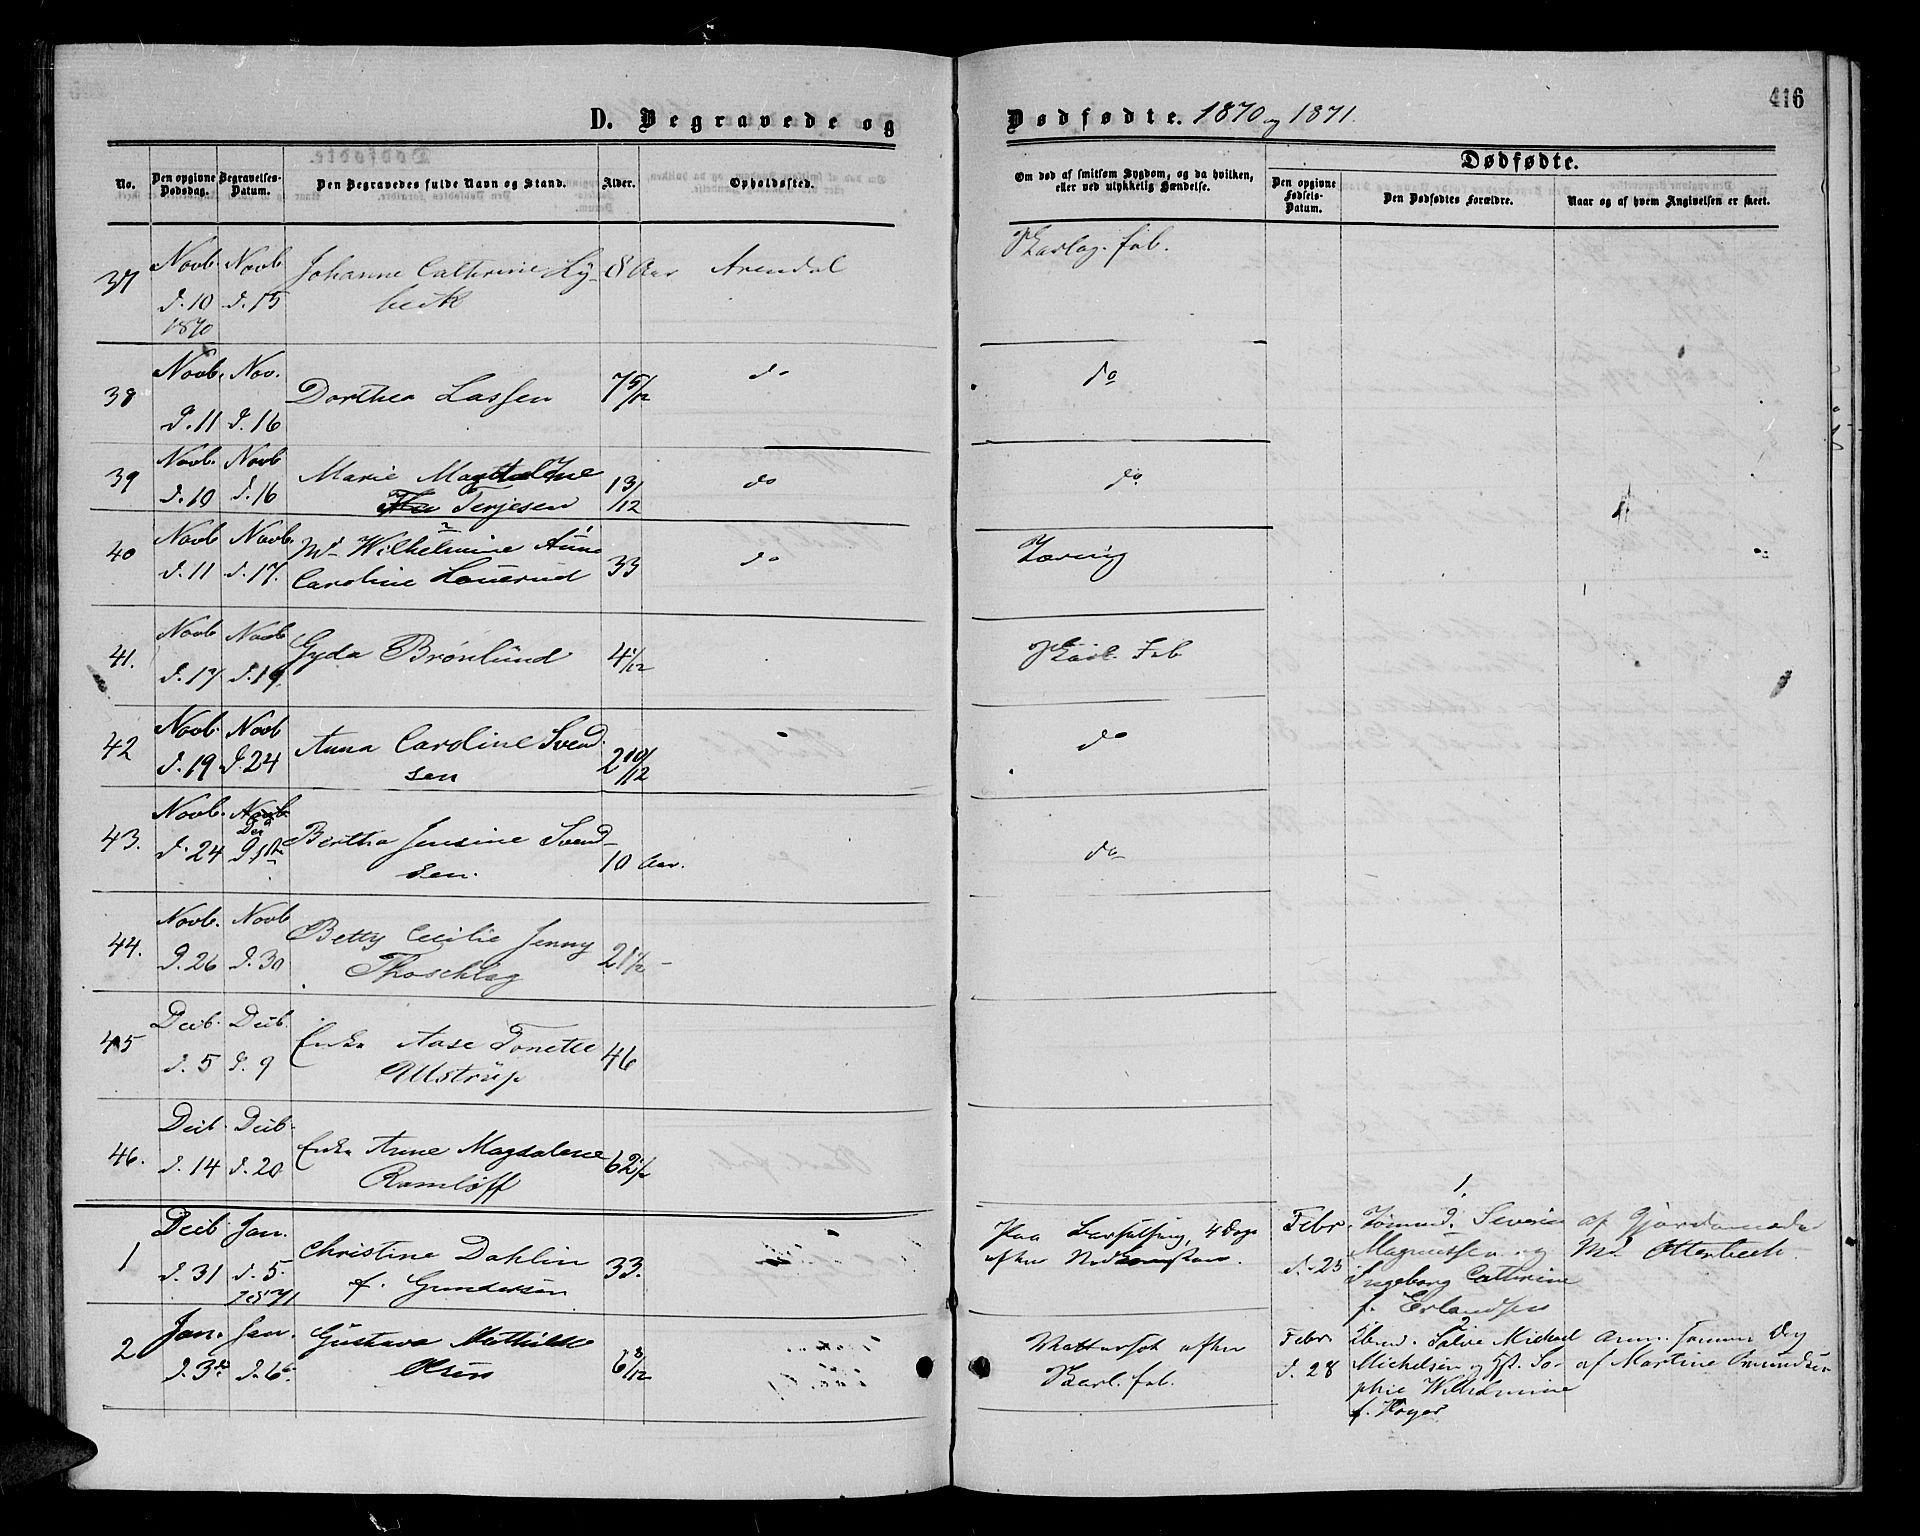 416
D. Begravede og Dødfødte. 1870 og 1871.
No.
Den opgivne Dødsdag.
Begravelses-Datum.
Den Begravedes fulde Navn og Stand.
Alder.
Opholdssted.
Om død af smitsom Sygdom, og da hvilken, eller ved ulykkelig Hændelse.
Dødfødte.
Den opgivne Fødsels-Datum.
Den Dødfødtes Forældre.
Naar og af hvem Angivelsen er skeet.
37 Novb. d. 10 1870 Novb d. 15 Johanne Cathrine Ly-
beck 8 Aar Arendal Skarlag. feb.
38 Novb. d. 11 Nov. d. 16 Dorthea Lassen 7 5/12 do do
39 Novb. d. 10 Novb d. 16 Marie Magdalene
Terjesen 1 3/12 do do
40 Novb d. 11 Novb. d. 17. Md. Wilhelmine
Caroline Louerud 33 do Tæring
41. Novb d. 17 Novb d. 19. Gyda Brönlund 4 1/12 Skarl. Feb
42 Novb. d. 19 Novb d. 24 Anna Caroline Svend-
sen 2 10/12 do
43. Novb. d. 24 Dec d. 1ste Bertha Jensine Svend-
sen. 10 Aar. do
44. Novb. d. 26 Novb d. 30 Betty Cecilie Jenny
21 1/2
45 Decb. d. 5 Decb. d. 9 Enke Aase Tonette
Ullstrüp 46
46. Decb. d. 14 Decb. d. 20 Enke Anne Magdalene
Ramlöff 62 1/2
1 Decb d. 31 Jan. d. 5. 1871 Christine Dahlin
f. Gundersen 33. Paa Barselseng, 4 Dage
efter Nedkomsten.
2 Jan. d. 3de Jan. d. 6te Gustava Mathilde
Olsen 6 8/12 Vattersot efter
Skarl. feb.
1.
Febr. d. 25 Tømmd. Severin
Magnussen og
Ingeborg Cathrine
f. Erlandsen
af Gjordemoder
Md. Otterbech.
2
Febr d. 28 Salve Michael
Michelsen og Hst. So-
phie Wilhelmine
f. Höyer
Anm. samme Dag
af Martine Amundsen